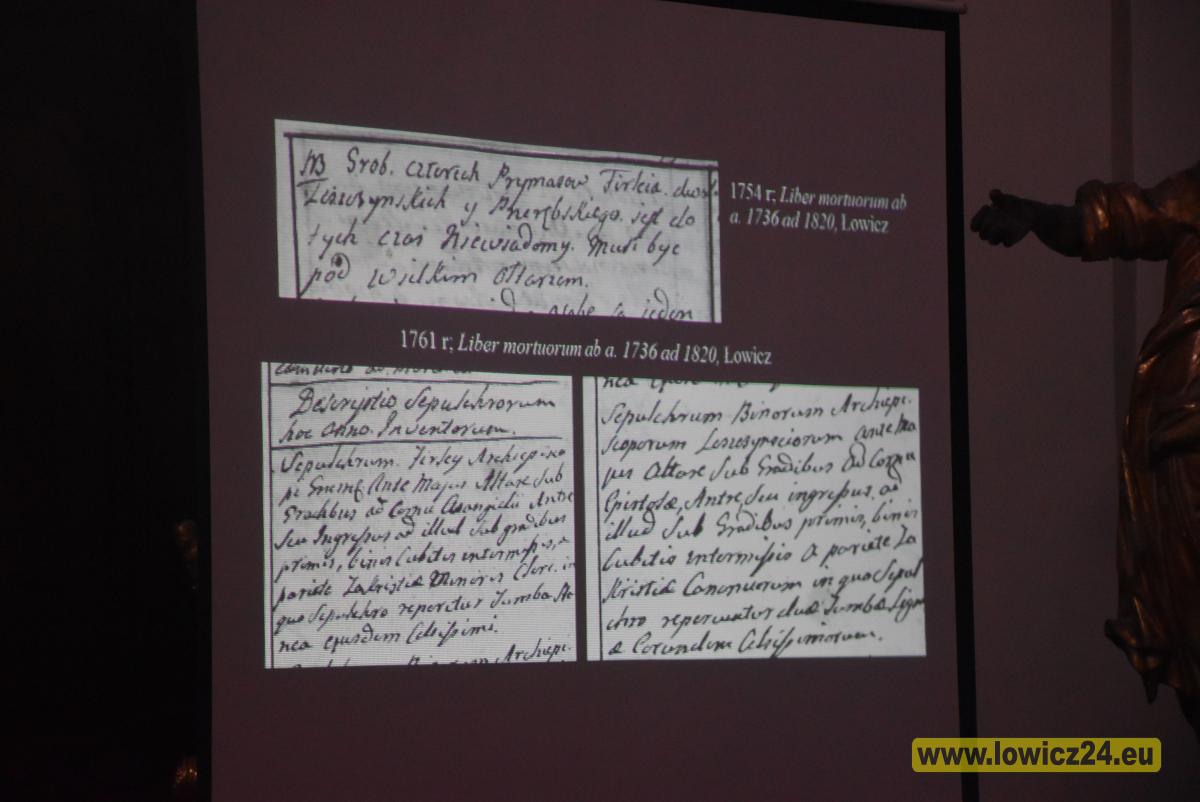 NB Grob. czterech Prymasow, Firleia. dwoch
Leszczynskich y Przerębskiego. jest do
tych czas Niewiadomy. Musi byc
pod wielkim Ołtarzem.
1754 r; Liber mortuorum ab
a. 1736 ad 1820, Łowicz
1761 r; Liber mortuorum ab a. 1736 ad 1820, Łowicz
Descriptio Sepulchrorum
hoc anno. Inventorum.
Sepulchrum. Firley Archiepisco
pi Gnesn. Ante Majus Altare Sub
Gradibus ad Cornu Evangelii Antre
seu Ingressus ad illud Sub gradibus
primis, binis Cubitis intermissis, a
pariete Zakristiæ Minoris Cleri. in
quo Sepulchro reperitur Tumba Sta
nea ejusdem Celsissimi.
Sepulchrum Binorum Archiepi.
scoporum Leszczynsciorum ante Ma
jus Altare Sub Gradibus ad Cornu
Epistolæ, Antre, Seu ingressus. ad
illud Sub Gradibus primis, binis
Cubitis intermissis a pariete Za
kristiæ Canonicorum in quo Sepul
chro reperiuntur duæ Tumbæ Ligne
æ Eorundem Celsissimorum.
www.lowicz24.eu